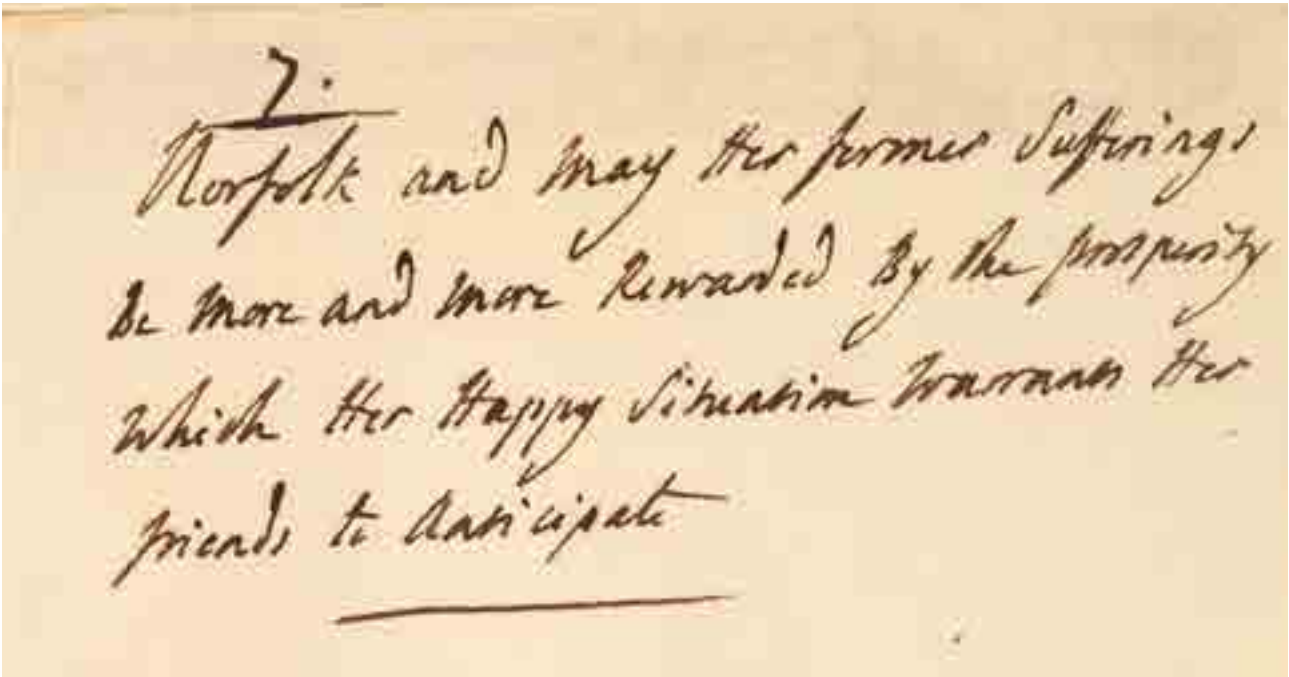 7.
Norfolk and may Her former Sufferings
Be more and more Rewarded By the prosperity
which Her Happy Situation warrants Her
friends to Anticipate